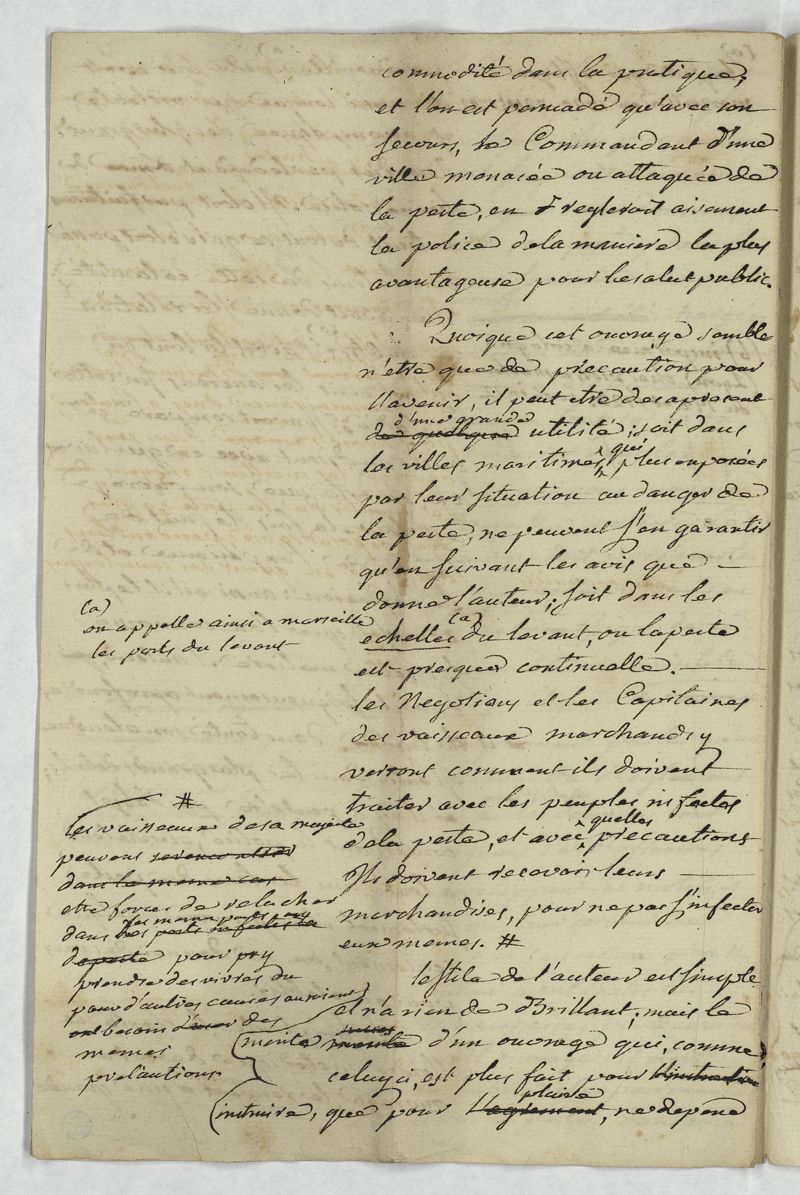 commodité dans la pratique,
et l'on est persuadé qu'avec son
secours, le Commandant d'une
ville menacée ou attaquée de
la peste, en regleroit aisement
la police de la maniere la plus
avantageuse pour le salut public.
Quoique cet ouvrage semble
n'etre que de precaution pour
l'avenir, il peut etre des apresent
d'une grande
de quelque utilité; soit dans
qui
les villes maritimes, plus exposées
par leur situation au danger de
la peste, ne peuvent s'en garantir
qu'en suivant les avis que
donne l'auteur; soit dans les
echelles (a) du levant, ou la peste
est presque continuelle.
les Negotians et les Capitaines
des vaisseaux marchands y
verront comment ils doivent
traiter avec les peuples infectés
quelles
de la peste, et avec precautions
Ils doivent recevoir leurs
marchandises, pour ne pas s'infecter
eux memes. #
le stile de l'auteur est simple
et n'a rien de Brillant; mais le
merite d'un ouvrage qui, comme
celuy ci, est plus fait pour l'instruction
plaire
instruire, que pour l'agrement, ne depend
(a)
on appelle ainsi a marseille
les ports du levant
#
les vaisseaux de sa majesté
peuvent se rencontrer
dans le meme cas
etre forcés de relacher
les memes ports
dans les ports infectés de la
peste pour y
prendre des vivres ou
pour d'autres causes
ont besoin d'user des
memes
precautions